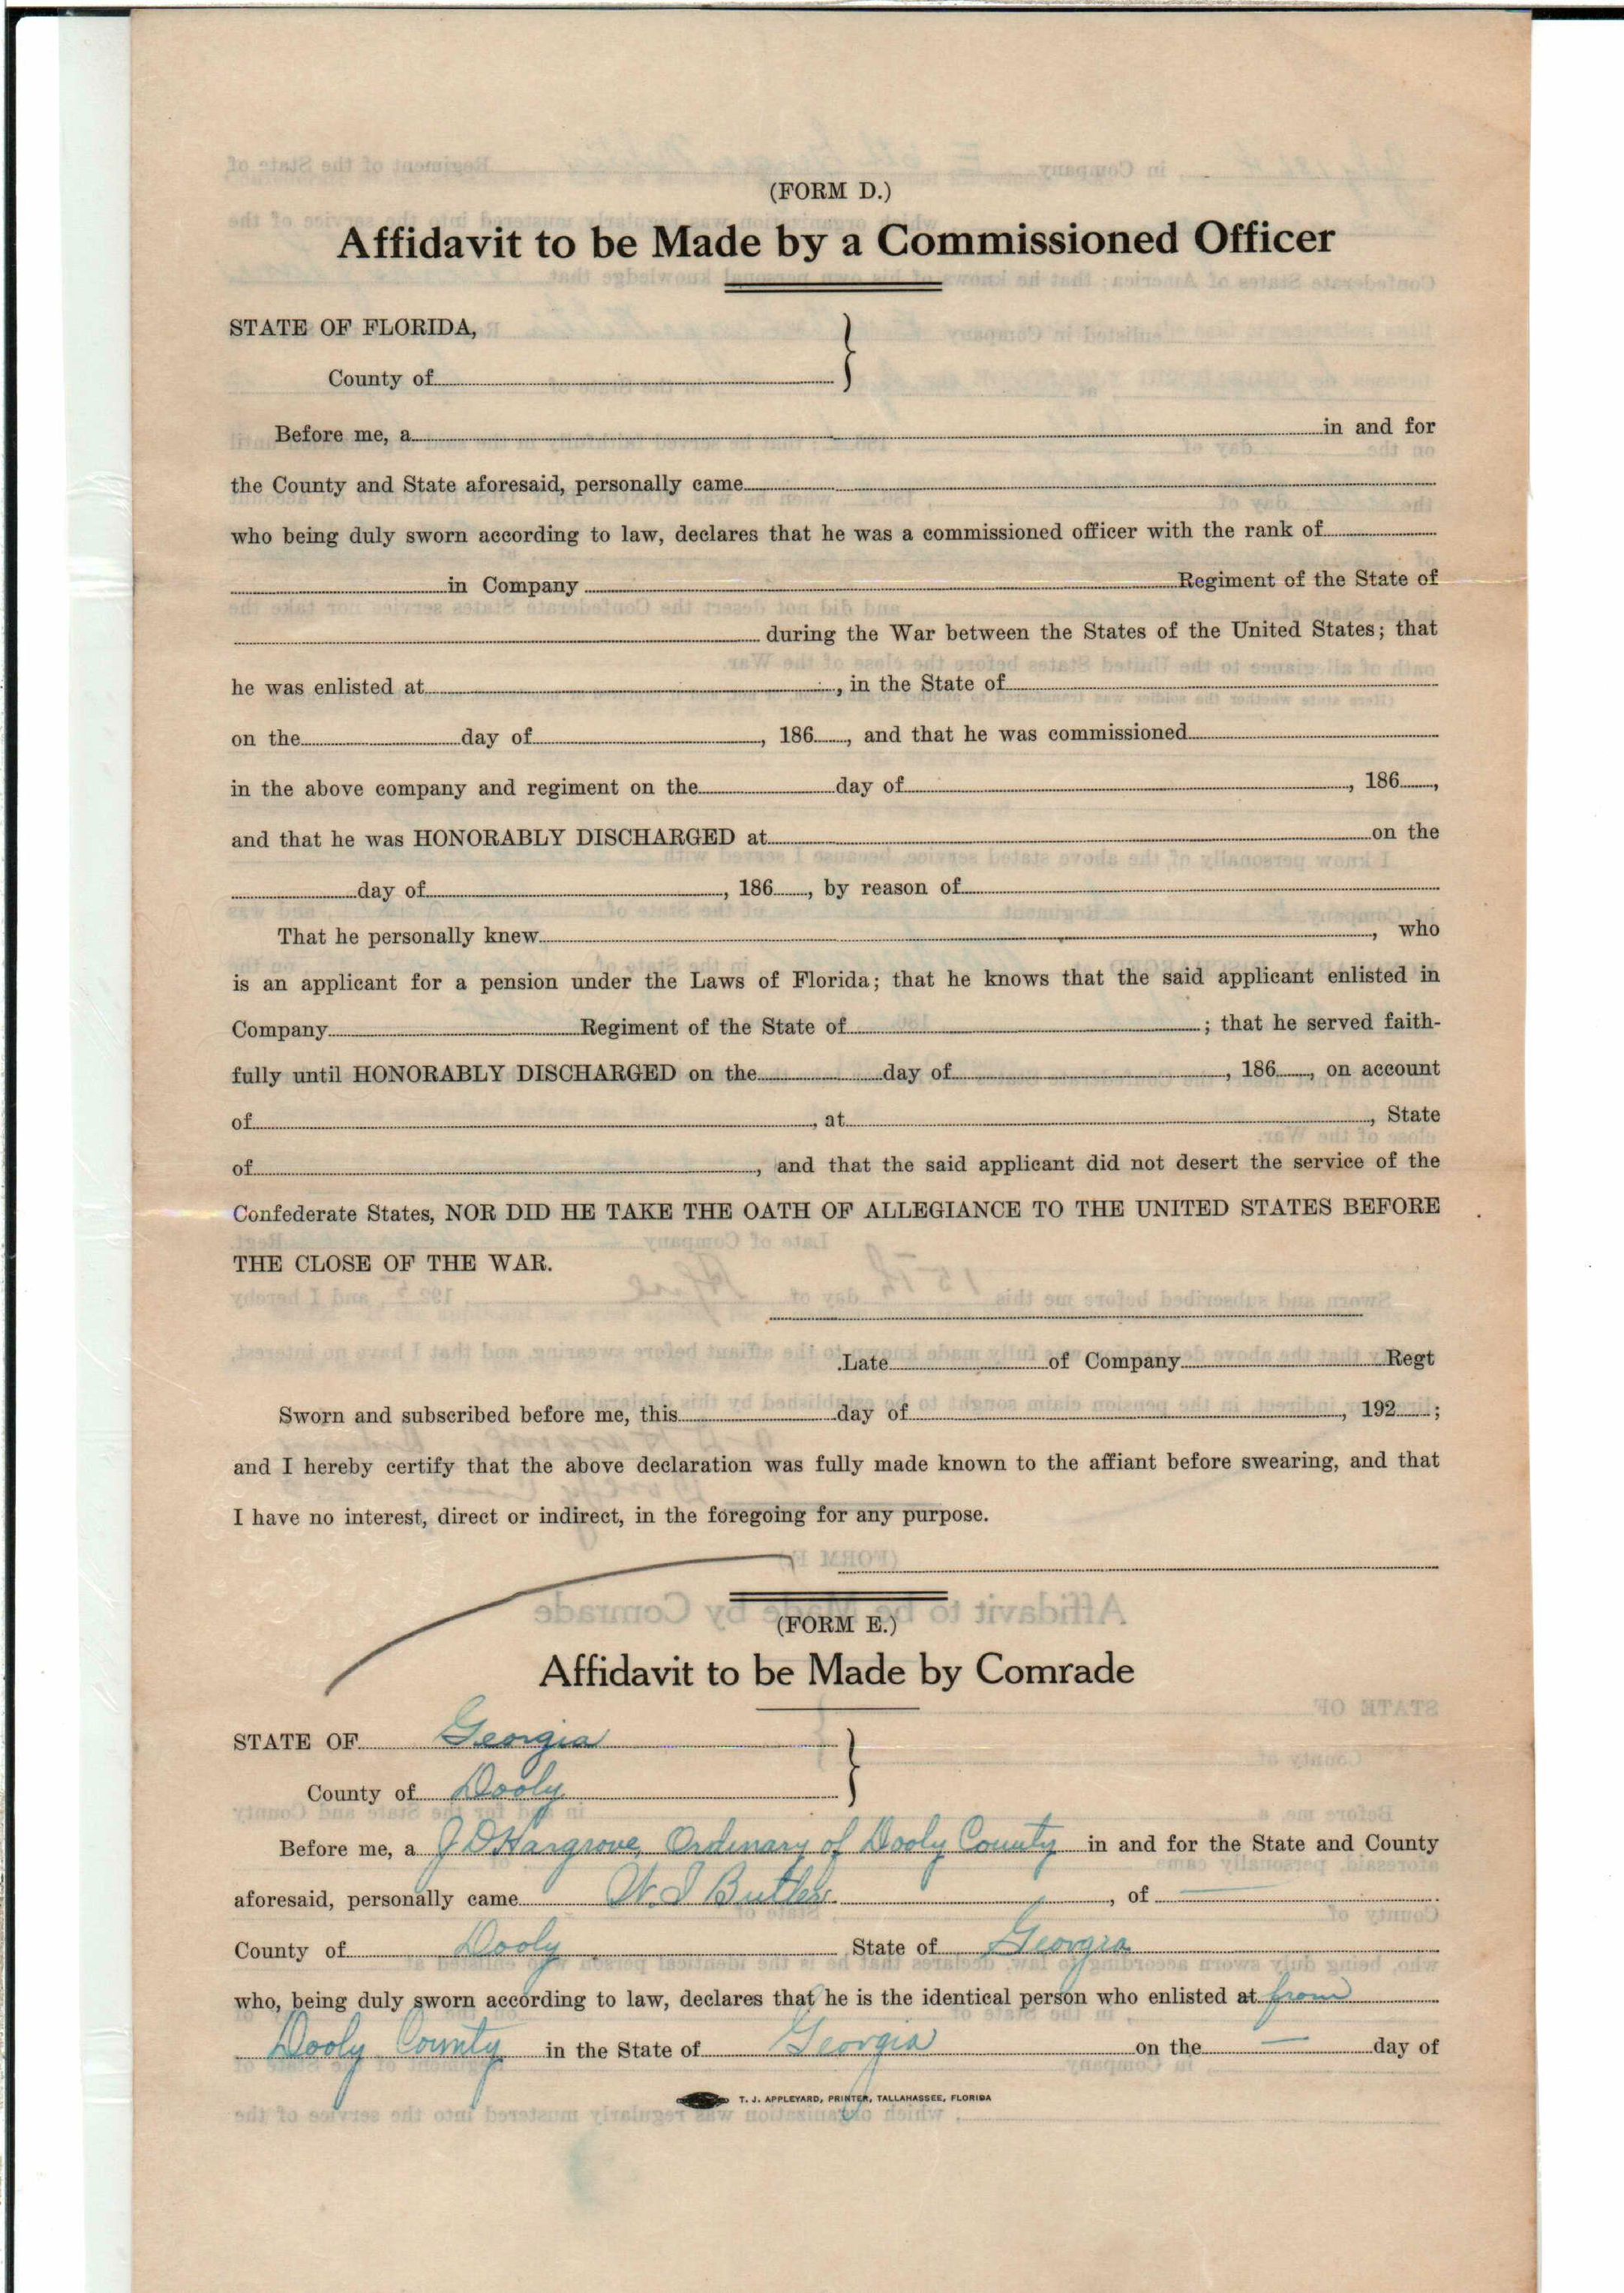 (FORM D.)
Affidavit to be Made by a Commissioned Officer
STATE OF FLORIDA,
County of
Before me, a in and for
the County and State aforesaid, personally came
who being duly sworn according to law, declares that he was a commissioned officer with the rank of
in Company Regiment of the State of
during the War between the States of the United States; that
he was enlisted at , in the State of
on the day of , 186 , and that he was commissioned
in the above company and regiment on the day of , 186 ,
and that he was HONORABLY DISCHARGED at on the
day of , 186 , by reason of
That he personally knew , who
is an applicant for a pension under the Laws of Florida; that he knows that the said applicant enlisted in
Company Regiment of the State of ; that he served faith-
fully until HONORABLY DISCHARGED on the day of , 186 , on account
of , at , State
of , and that the said applicant did not desert the service of the
Confederate States, NOR DID HE TAKE THE OATH OF ALLEGIANCE TO THE UNITED STATES BEFORE
THE CLOSE OF THE WAR.
Late of Company Regt
Sworn and subscribed before me, this day of , 192 ;
and I hereby certify that the above declaration was fully made known to the affiant before swearing, and that
I have no interest, direct or indirect, in the foregoing for any purpose.
(FORM E.)
Affidavit to be Made by Comrade
STATE OF Georgia
County of Dooly
Before me, a J D Hargrove, Ordinary of Dooly County in and for the State and County
aforesaid, personally came Butler , of —
County of Dooly State of Georgia
who, being duly sworn according to law, declares that he is the identical person who enlisted at from
Dooly County in the State of Georgia on the — day of
T. J. APPLEYARD, PRINTER, TALLAHASSEE, FLORIDA